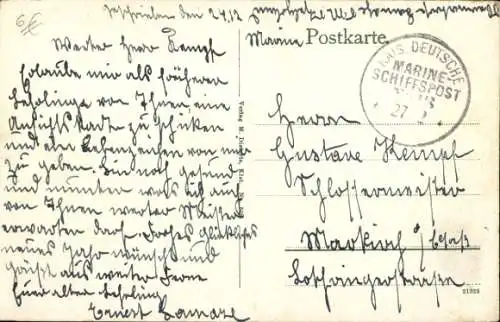 Geschrieben den 24.12
Werter Herr Kempf
Erlaube mir als früherer
Lehrlinge von Ihnen eine
Ansichtskarte zu schicken
und ein Lebenzeichen von mir
zu geben. Bin noch gesund
und munter was ich auch
von Ihnen werter Meister
erwarten darf. Frohes Glückliches
neues Jahr wünscht und
Grüsst aus weiter Ferne
Euer alter Lehrling
Ernest
Marine Postkarte.
KAIS. DEUTSCHE
MARINE-
SCHIFFSPOST
27
Herrn
Gustave Kempf
Schlossermeister
Markirch i/Elsaß
Lothringerstrasse